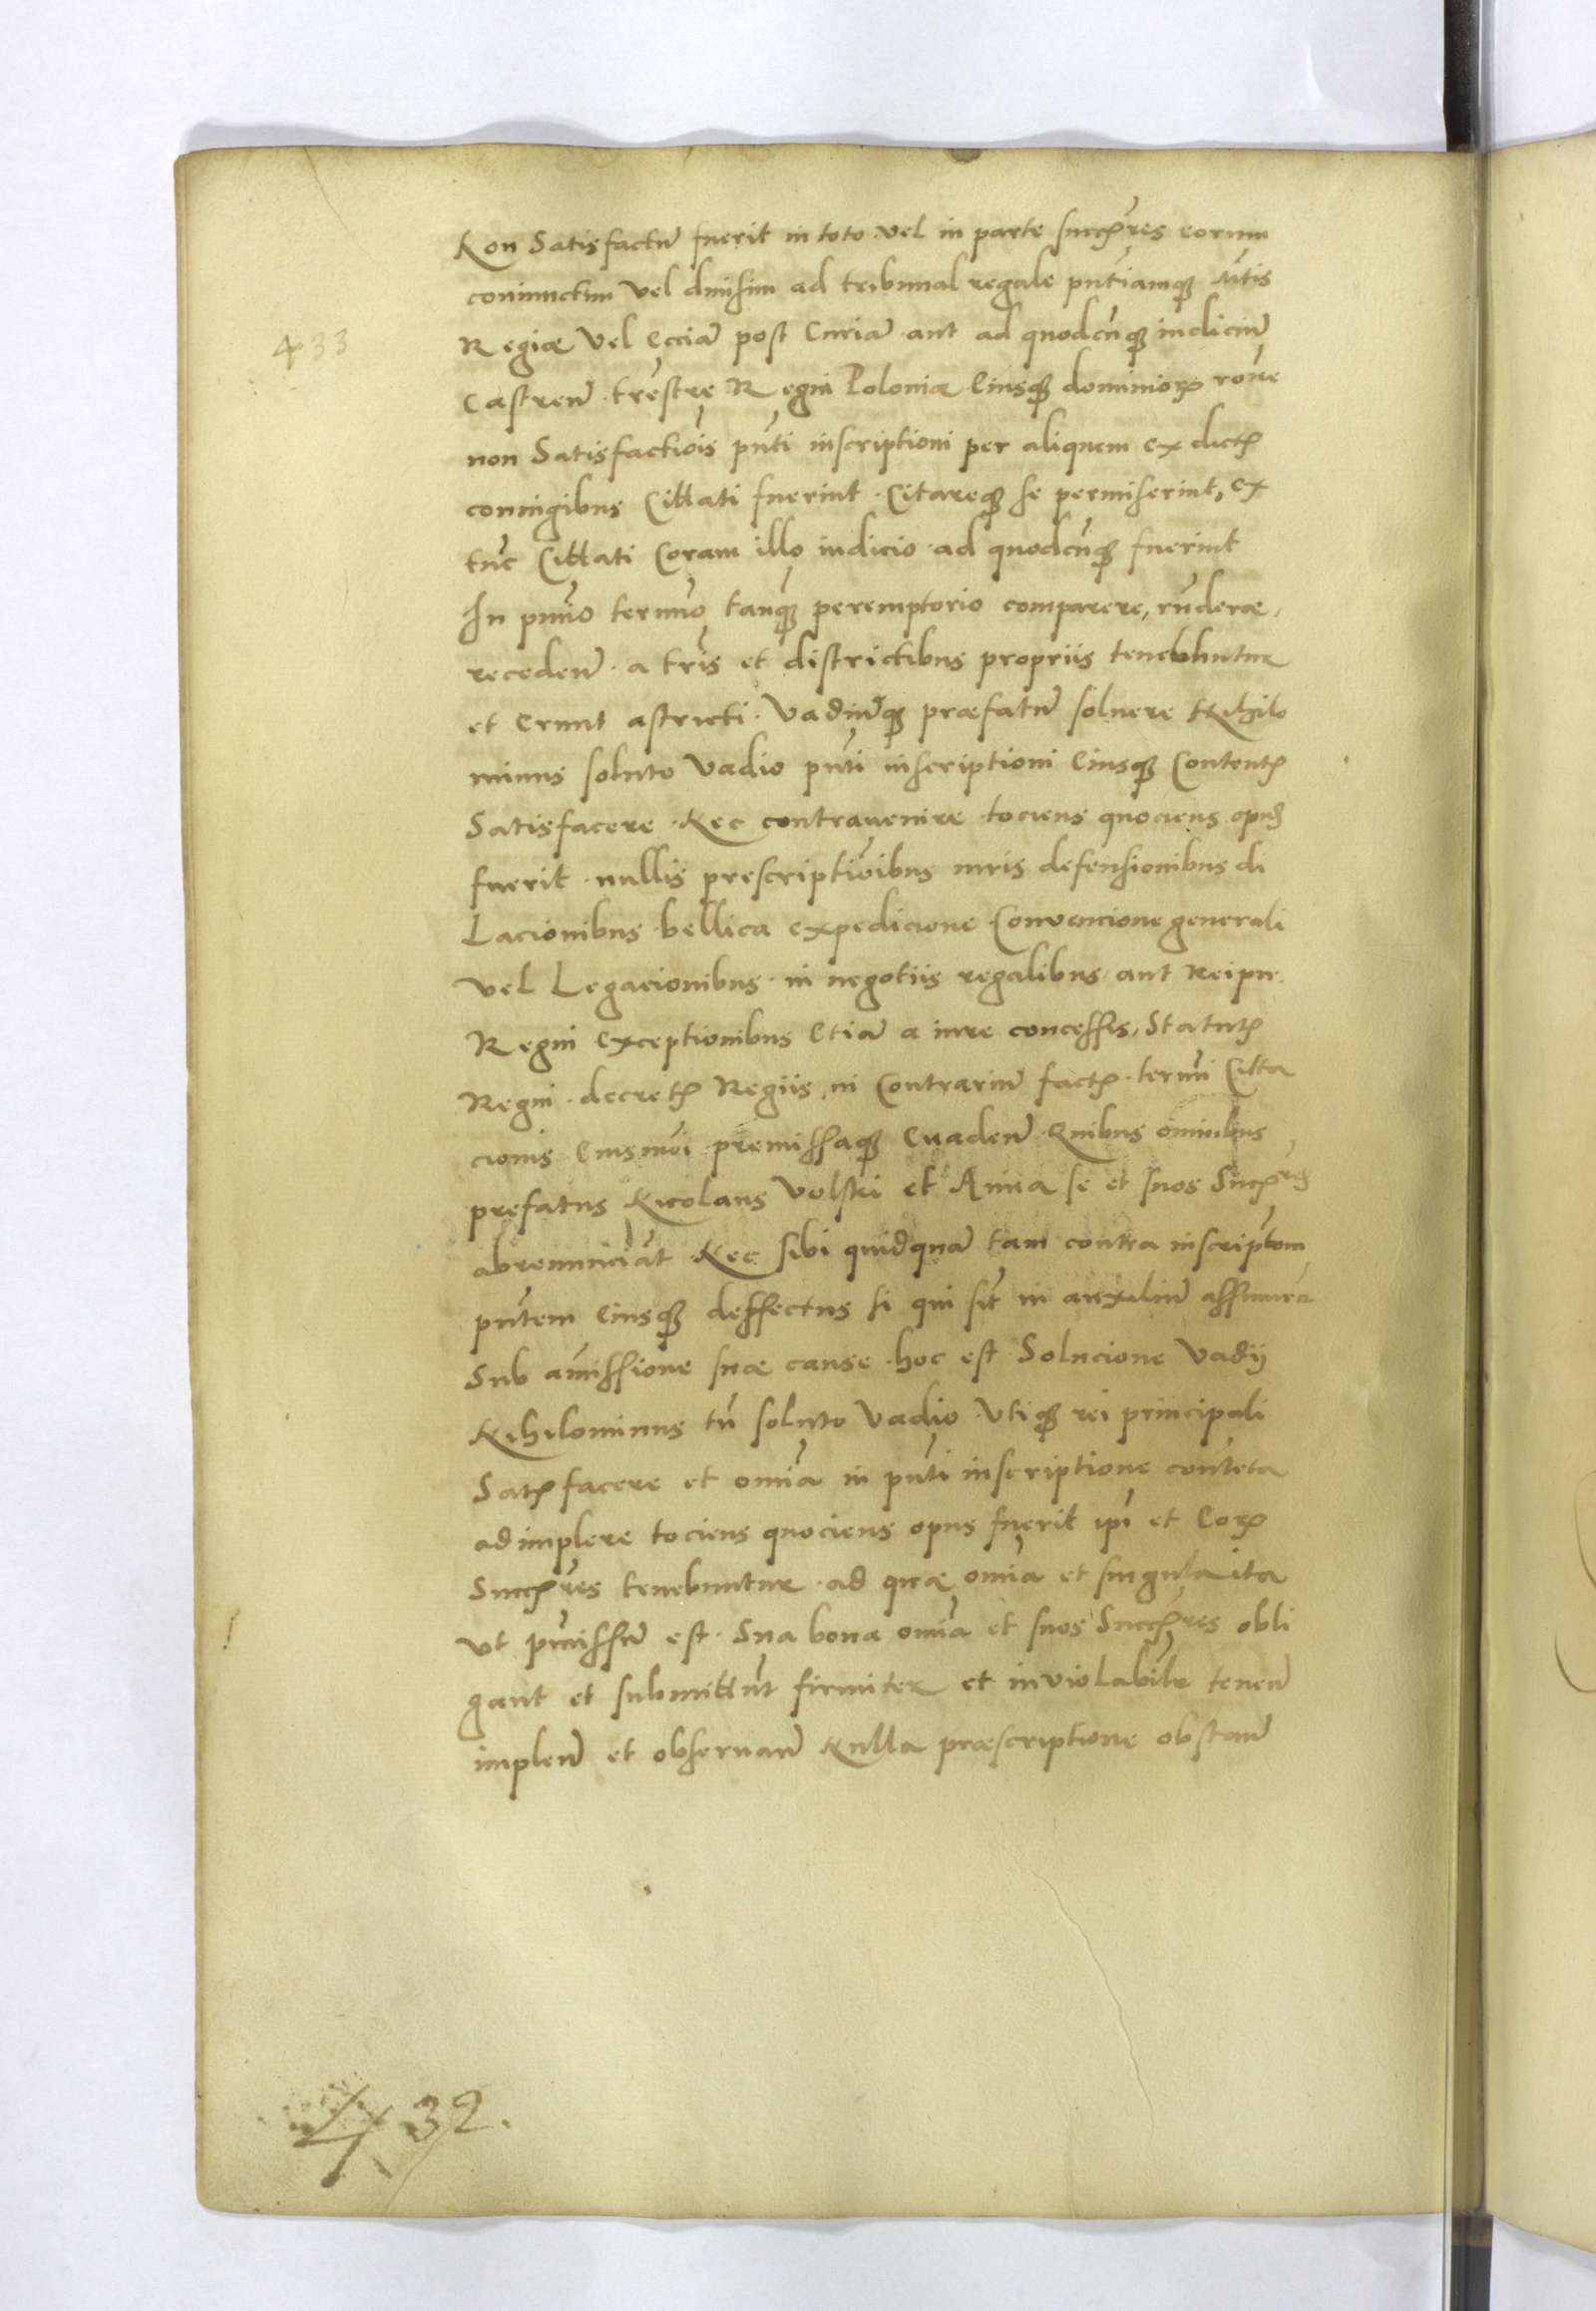 Non Satisfactū fuerit in toto vel in parte succꝓres eorum
coniunctim vel diuisim ad tribunal regale pn̄tiamqꝫ Mtis
433
Regiæ vel Ecciā post Curiā aut ad quodcūqꝫ iudiciū
Castren̄ tr̄estre Regni Poloniæ Eiusqꝫ dominioꝝ rōne
non Satisfactiōis pn̄ti inscriptioni per aliquem ex dictꝭ
coniugibus Cittati fuerint Citareqꝫ se permiserint, ex
tūc Cittati Coram illo iudicio ad quodcūqꝫ fuerint
In pm̄io termīo tanqꝫ peremptorio comparere, rn̄deræ,
receden̄ a tr̄is et districtibus propriis tenebuntur
et Erunt astricti Vadiūqꝫ præfatū soluere Nihilo
minus soluto Vadio pn̄ti inscriptioni Eiusqꝫ Contentꝭ
Satisfacere Nec contrauenire tociens quociens opus
fuerit nullis prescriptiōibus iuris defensionibus di
Lacionibus bellica expedicione Convencione generali
vel Legacionibus in negotiis regalibus aut Reipu.
Regni Exceptionibus Etiā a iure concessis, Statutꝭ
Regni decretꝭ Regiis in Contrariū factꝭ termī Citta
cionis Eiusmōi premissaqꝫ Euaden̄ Quibus omīnibus
prefatus Nicolaus Volski et Anna se et suos Succꝓres
abrenunciāt Nec sibi quidquā tam contra inscriptōm
pn̄tem Eiusqꝫ deffectus si qui sīt in auxiliū assumēt
Sub amissione suæ cause hoc est Solucione Vadij
Nihilominus tn̄ soluto Vadio Vtiqꝫ rei principali
Satꝭfacere et omīa in pn̄ti inscriptione contēta
adimplere tociens quociens opus fuerit ipī et Eoꝝ
Succꝓres tenebuntur ad quæ omīa et singula ita
vt pm̄issū est Sua bona omīa et suos Succꝓres obli
gant et submittūt firmiter et inviolabilr tenen̄
implen̄ et obseruan̄ Nulla præscriptione obstan̄
432.